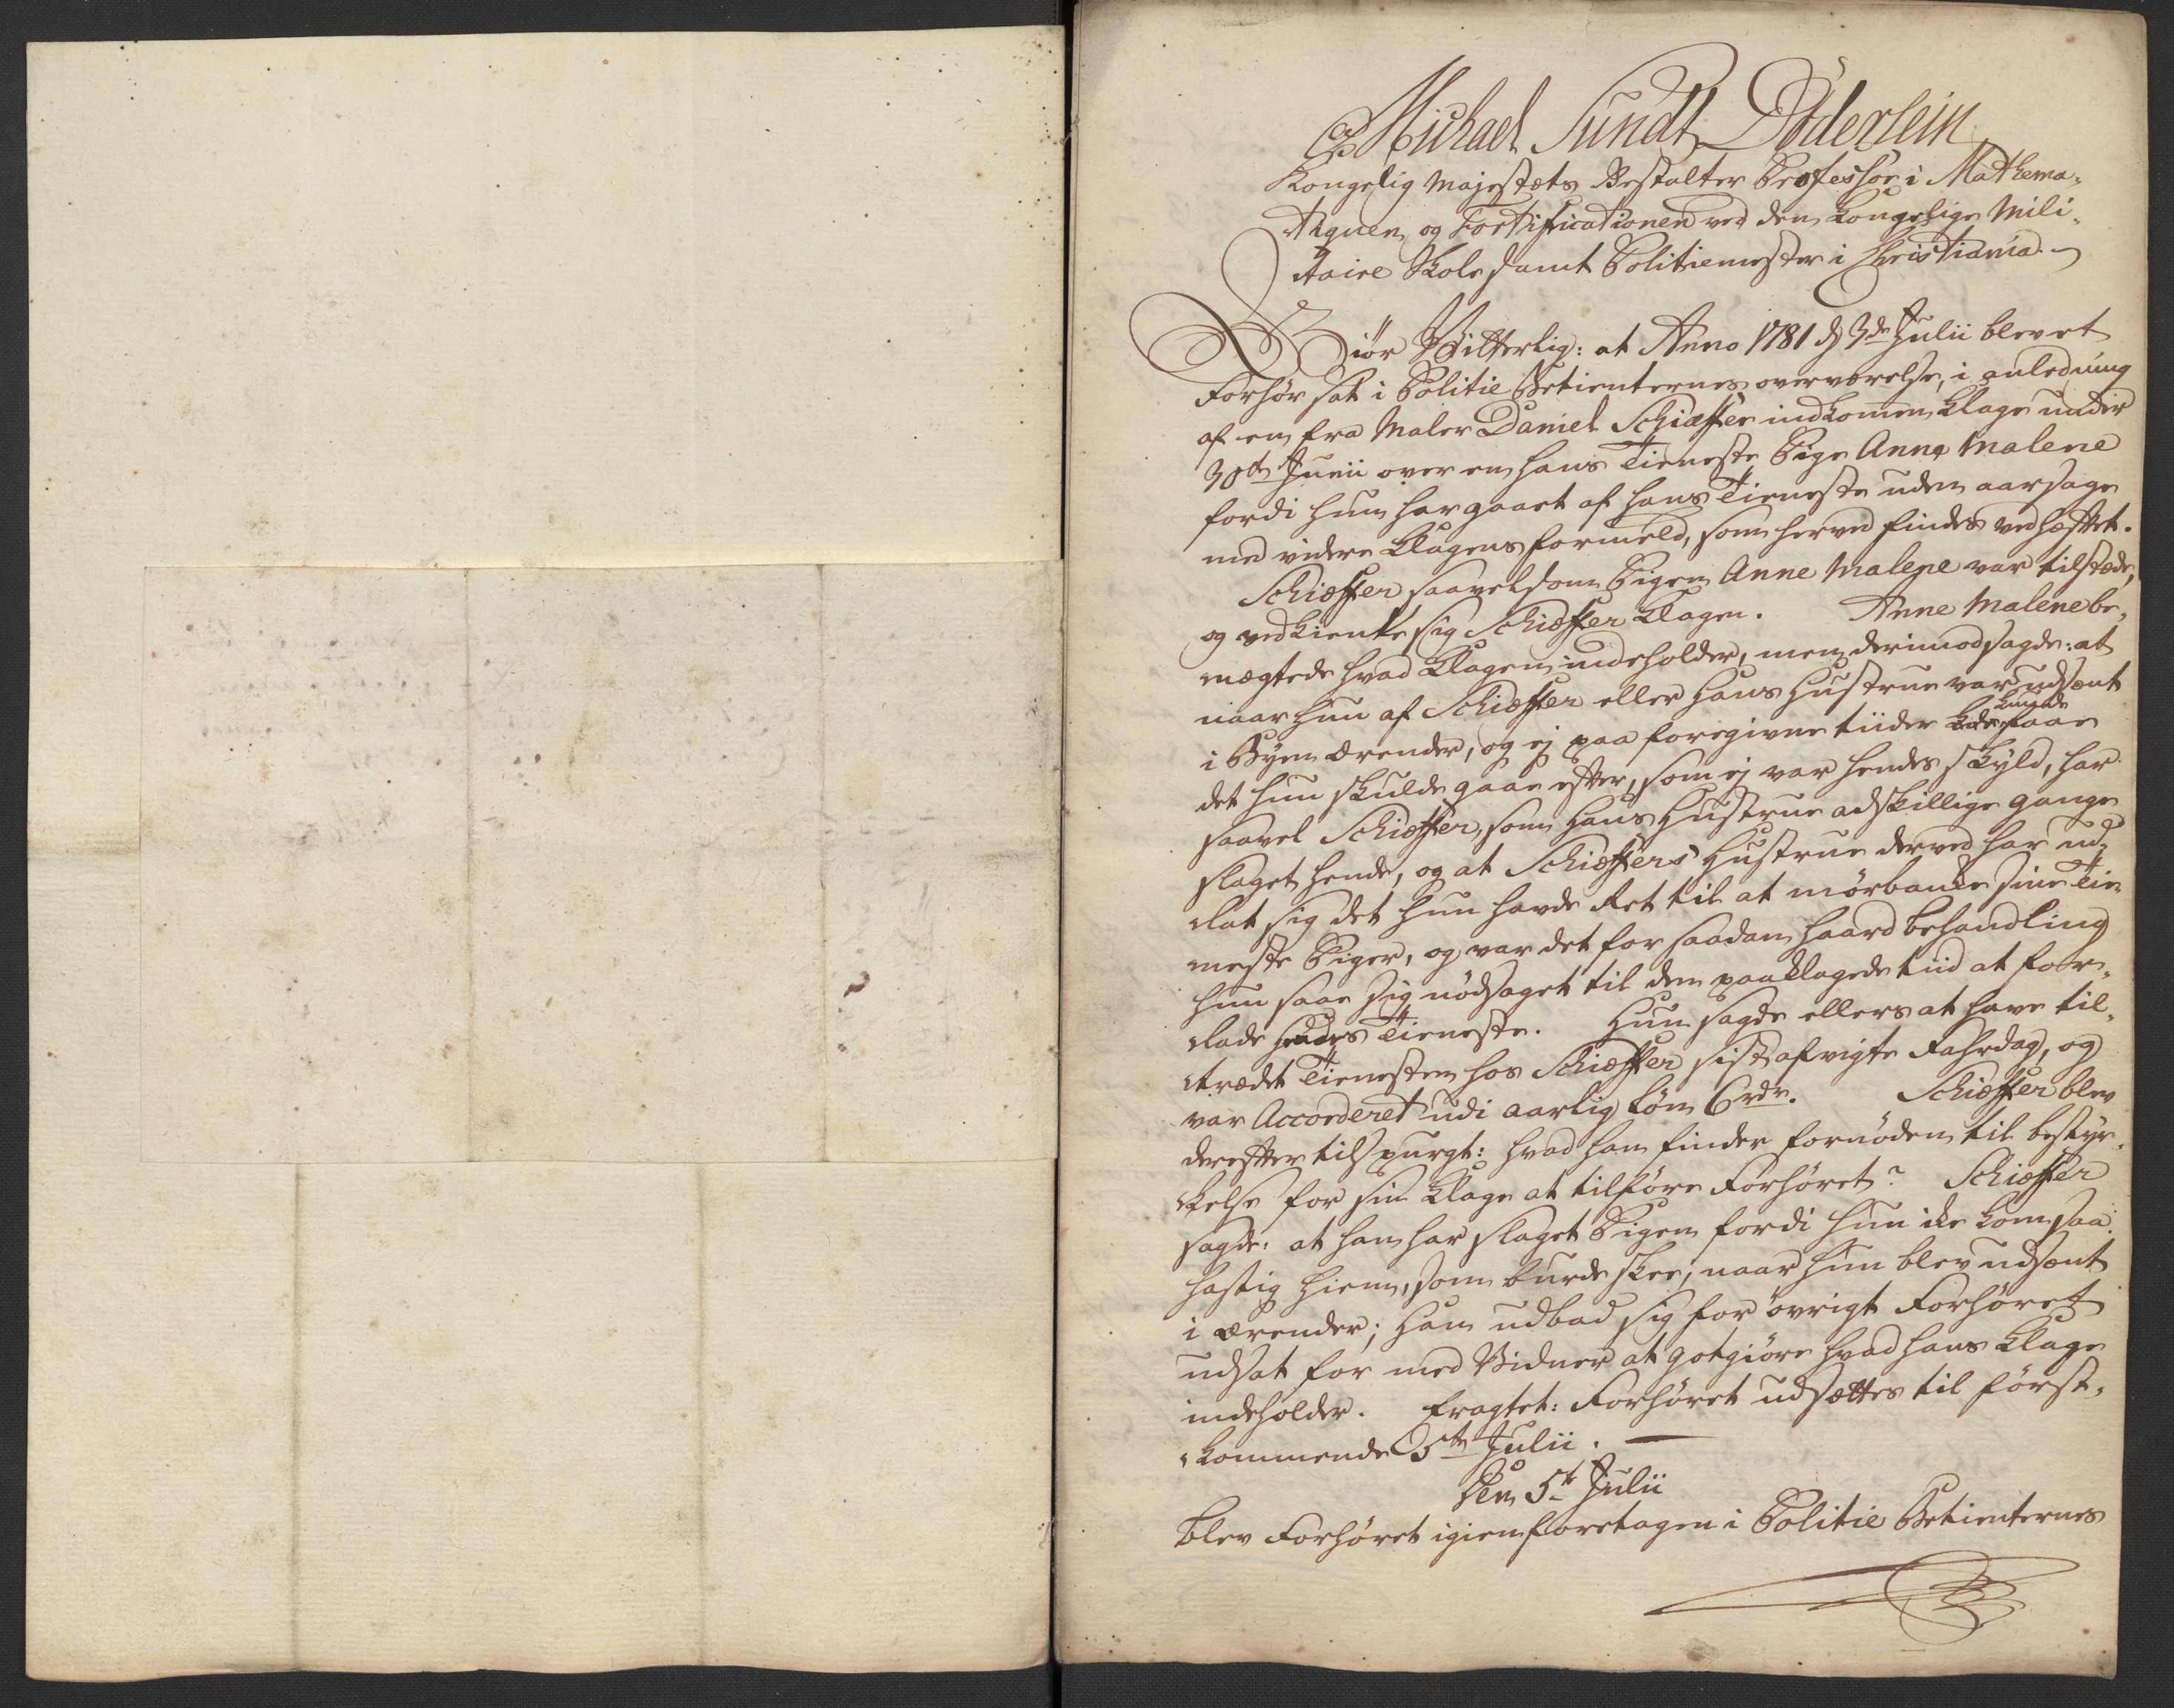 Michael Sundt Döderlein
Kongelig Majestæts Bestalter Professor i Mathema-
tiquen og Fortificationen ved den Kongelige Mili-
taire Skole samt Politiemester i Christiania
Giør Vitterlig: at Anno 1781 d 3de Julii blev et
Forhør sat i Politie Betienternes overværelse, i anledning
af en fra Maler Daniel Schiæffer indkommen Klage under
30te Junii over en hans Tieneste Pige Anne Malene
fordi hun har gaaet af hans Tieneste uden aarsage
med videre Klagens formeld, som herved findes vedhæftet.
Schiæffer saavelsom Pigen Anne Malene var tilstæde,
og vedkiente sig Schiæffer Klagen. Anne Malene be-
nægtede hvad Klagen indeholder, men derimod sagde: at
naar hun af Schiæffer eller Hans Hustrue var udsænt
i Byen ærender, og ej paa foregivne tiider kunde faae
det hun skulde gaae efter, som ej var hendes skyld, har
saavel Schiæffer, som Hans Hustrue adskillige gange
slaget hende, og at Schiæffers Hustrue derved har ud-
ladt sig det hun havde Ret til at mørbanke sine Tie-
neste Piger, og var det for saadan haard behandling
hun saae sig nødsaget til den paaklagede tiid at for-
lade hendes Tieneste. Hun sagde ellers at have til-
trædt Tienesten hos Schiæffer sidst afvigte Fahrdag, og
var Accorderet udi aarlig Løn 6 rdr. Schiæffer blev
derefter tilspurgt: hvad han finder fornøden til bestyr-
kelse for sin Klage at tilføre Forhøret? Schiæffer
sagde: at han har slaget Pigen fordi hun ike kom saa
hastig hiem, som burde skee, naar hun blev udsænt
i ærender; Han udbad sig for øvrigt Forhøret
udsat for med Vidner at gotgiøre hvad hans Klage
indeholder. Eragtet: Forhøret udsættes til først-
kommende 5te Julii.
Den 5te Julii
blev Forhøret igien foretagen i Politie Betienternes